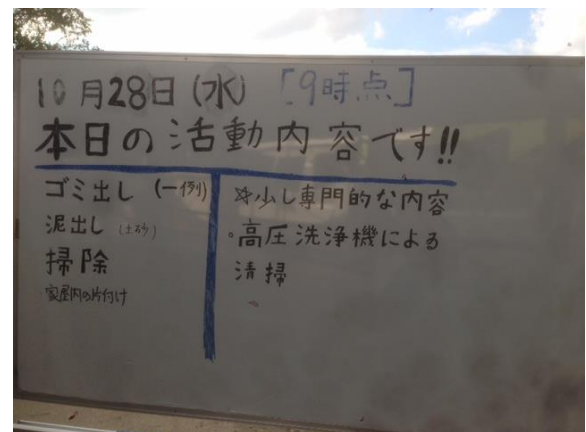 10月28日(水) [9時点]
本日の活動内容です!!
ゴミ出し (一例)
泥出し (土砂)
掃除
家屋内の片付け
☆少し専門的な内容
・高圧洗浄機による
清掃